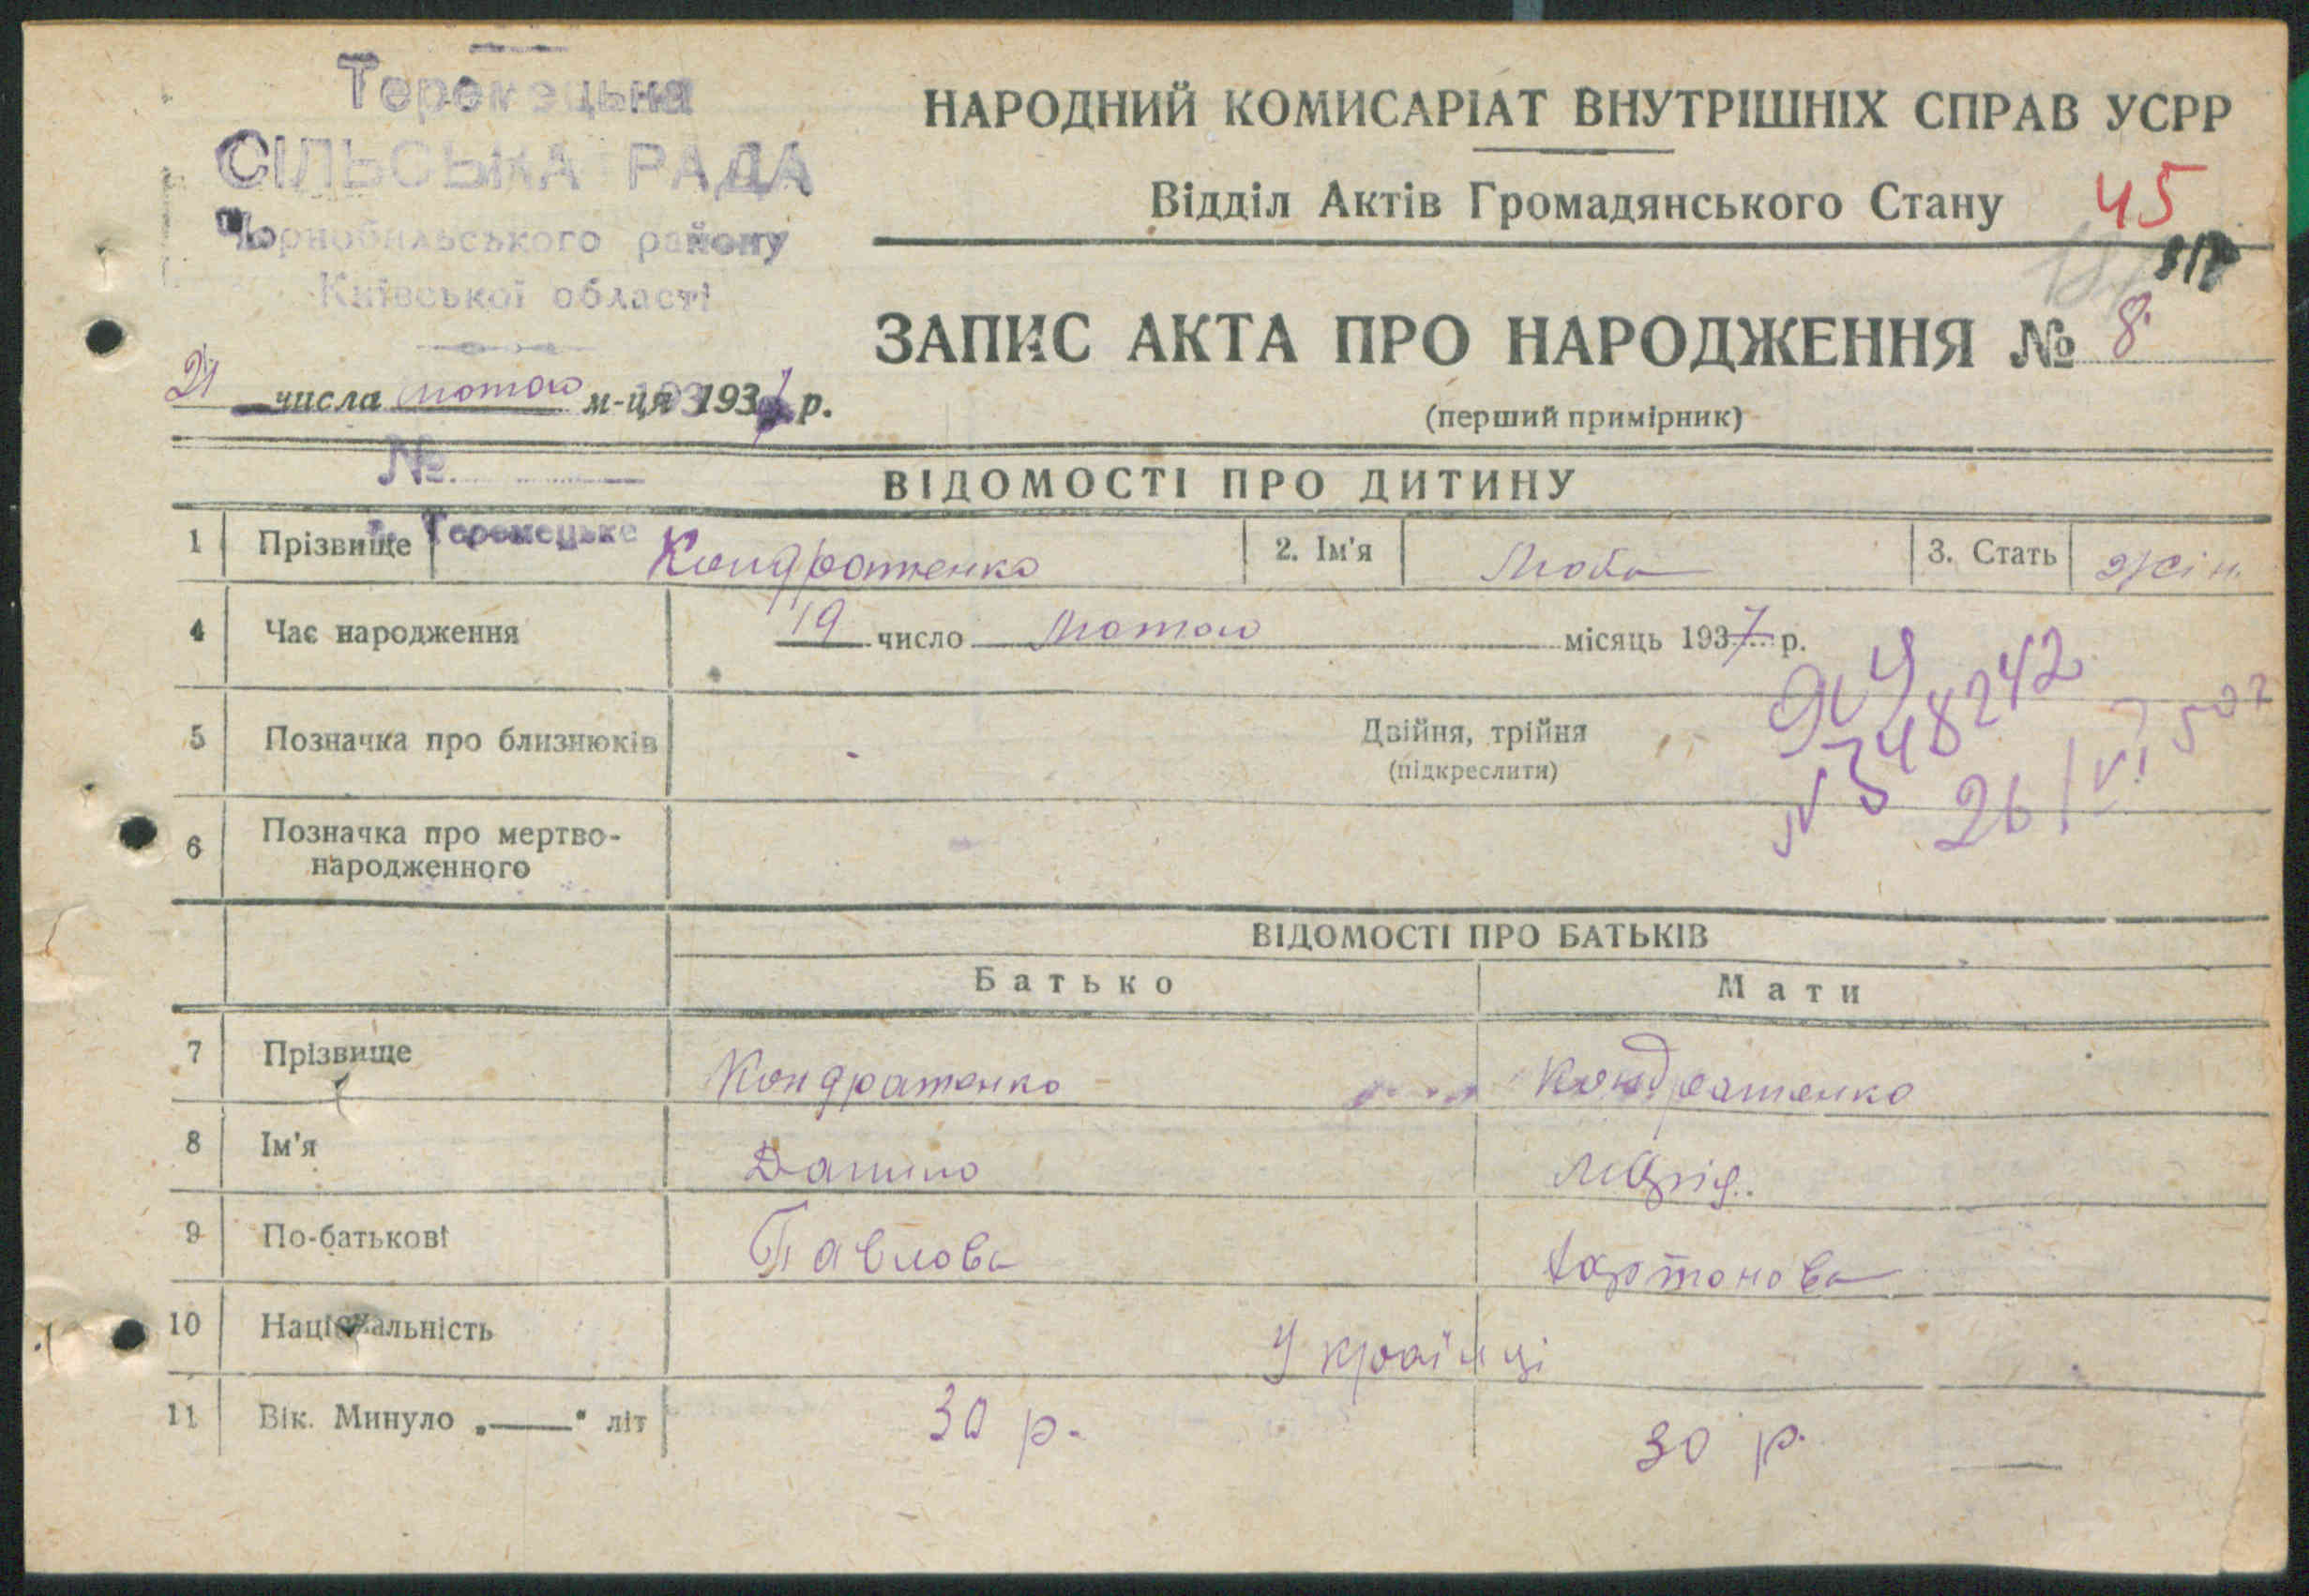 Теремецька
СІЛЬСЬКА РАДА
Чорнобильського району
Київської області
21 числа лютого м-ця 1937 р.
№
Теремецьке
НАРОДНИЙ КОМИСАРІАТ ВНУТРІШНІХ СПРАВ УСРР
Відділ Актів Громадянського Стану 45
ЗАПИС АКТА ПРО НАРОДЖЕННЯ № 8
(перший примірник)
ВІДОМОСТІ ПРО ДИТИНУ
1 Прізвище Кондратенко 2. Ім'я Люба 3. Стать жін.
4 Час народження 19 число Лютого місяць 1937 р.
5 Позначка про близнюків Двійня, трійня
(підкреслити)
348242
6 Позначка про мертво-
народженного
ВІДОМОСТІ ПРО БАТЬКІВ
Батько Мати
7 Прізвище Кондратенко Кондратенко
8 Ім'я Данило Марія.
9 По-батькові Павлова
10 Національність Українці
11 Вік. Минуло „——" літ 30 р. 30 р.